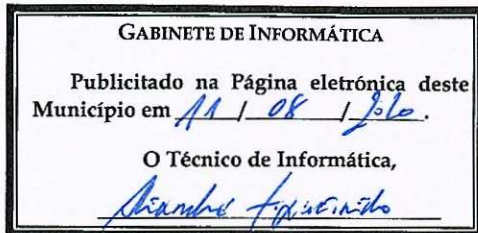 GABINETE DE INFORMÁTICA
Publicitado na Página eletrónica deste
Município em 11 / 08 / 2020.
O Técnico de Informática,